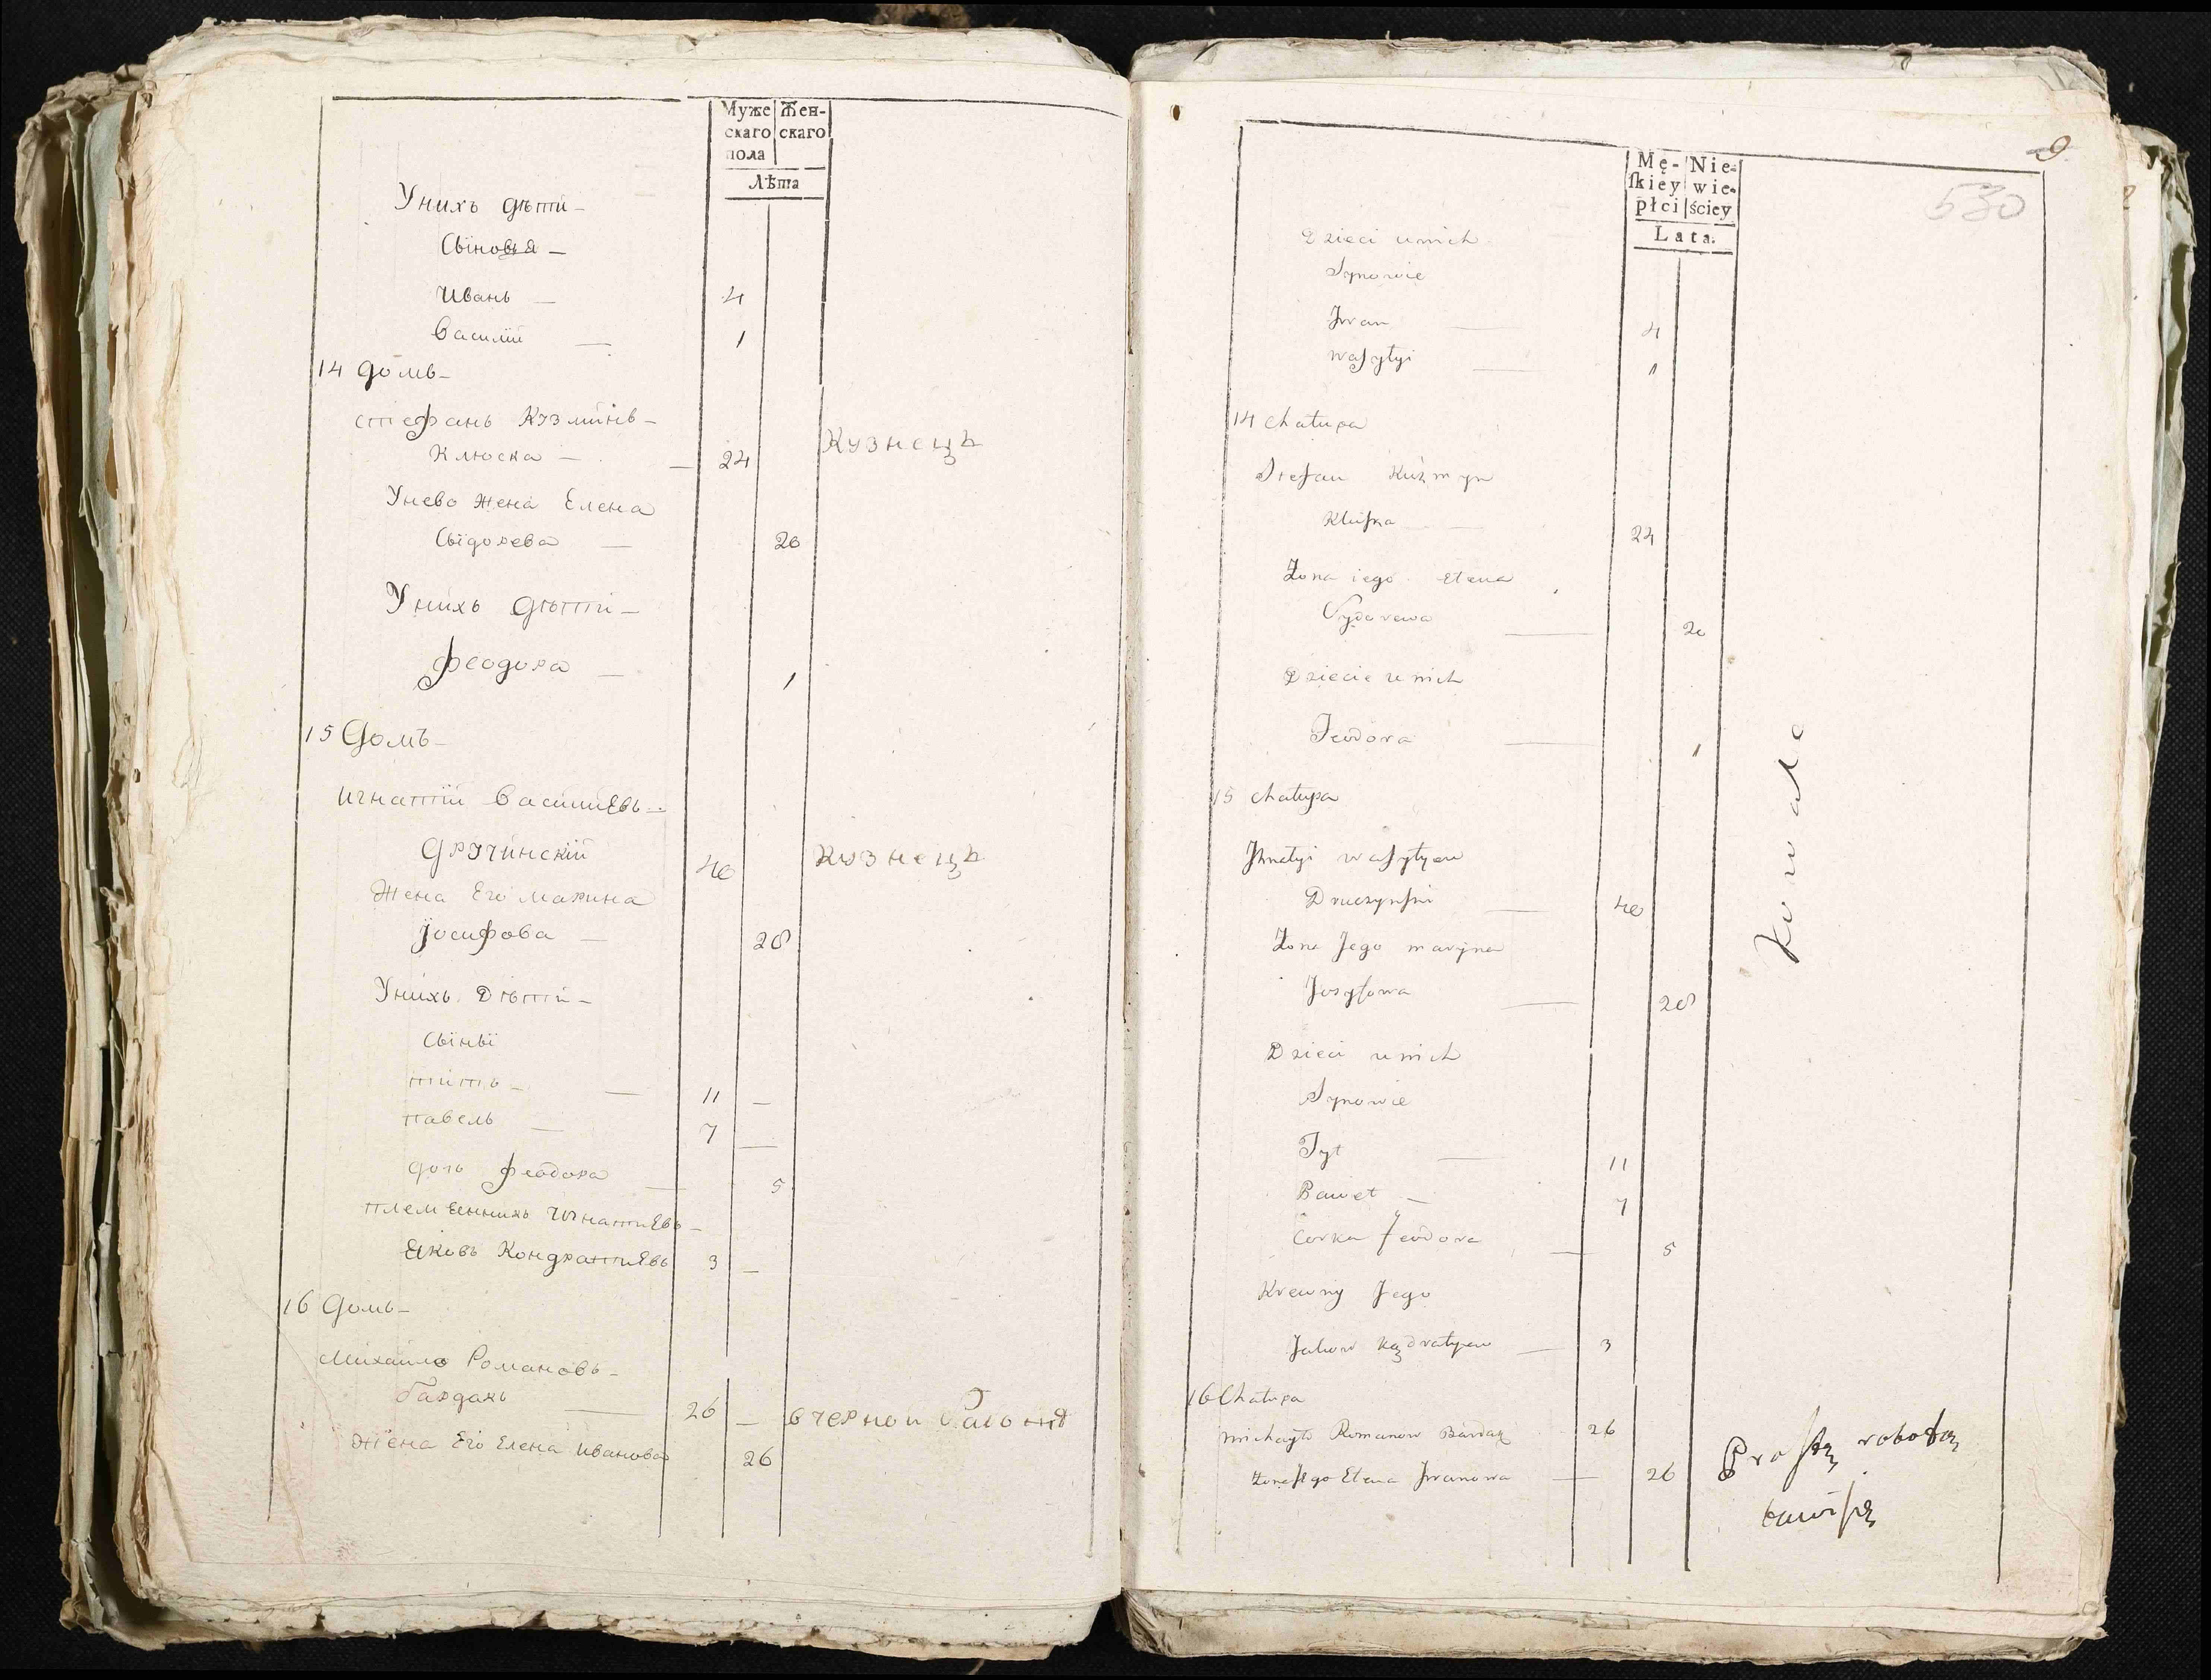 Муже Жен-
скаго скаго
пола
Лѣта
Унихъ дѣти
Сыновья
Иванъ 4
Василій 1
14 домъ
Стефанъ Кузминъ
Клюска 24 Кузнецъ
Унево жена Елена
Сыдорева 20
Унихъ дѣти
Феодора 1
15 домъ
Игнатій Василиевъ
Дручинскій 40 Кузнецъ
Жена Его Марина
Іосифова 28
Унихъ Дѣти
Сыны
титъ 11
павелъ 7
дочь феодора 5
племенникъ Игнатиевъ
Яковъ Кондратиевъ 3
16 домъ
Михайло Романовъ
бардакъ 26 вчерной работѣ
Жена Его Елена Иванова 26
9
530
Mę- Nie-
ſkiey wie-
płci ściey
Lata.
Dzieci unich
Synowie
Jwan 4
waſylyi 1
14 chałupa
Stefan Kuzmyn
Kluſka 24
Żona iego Elena
Sydorewa 20
Dziecie unich
Teodora 1
15 chałupa
Jhnatyi waſylyew
Druczynſki 40
Żona Jego maryna
Josyfowa 28
Dzieci unich
Synowie
Tyt 11
Paweł 7
Corka feodora 5
Krewny Jego
Jakow Kądratyew 3
Kowale
16 Chałupa
michayło Romanow Bardak 26
Żona Jego Elena Jwanowa 26
Proſtą robotą
bawi ſię